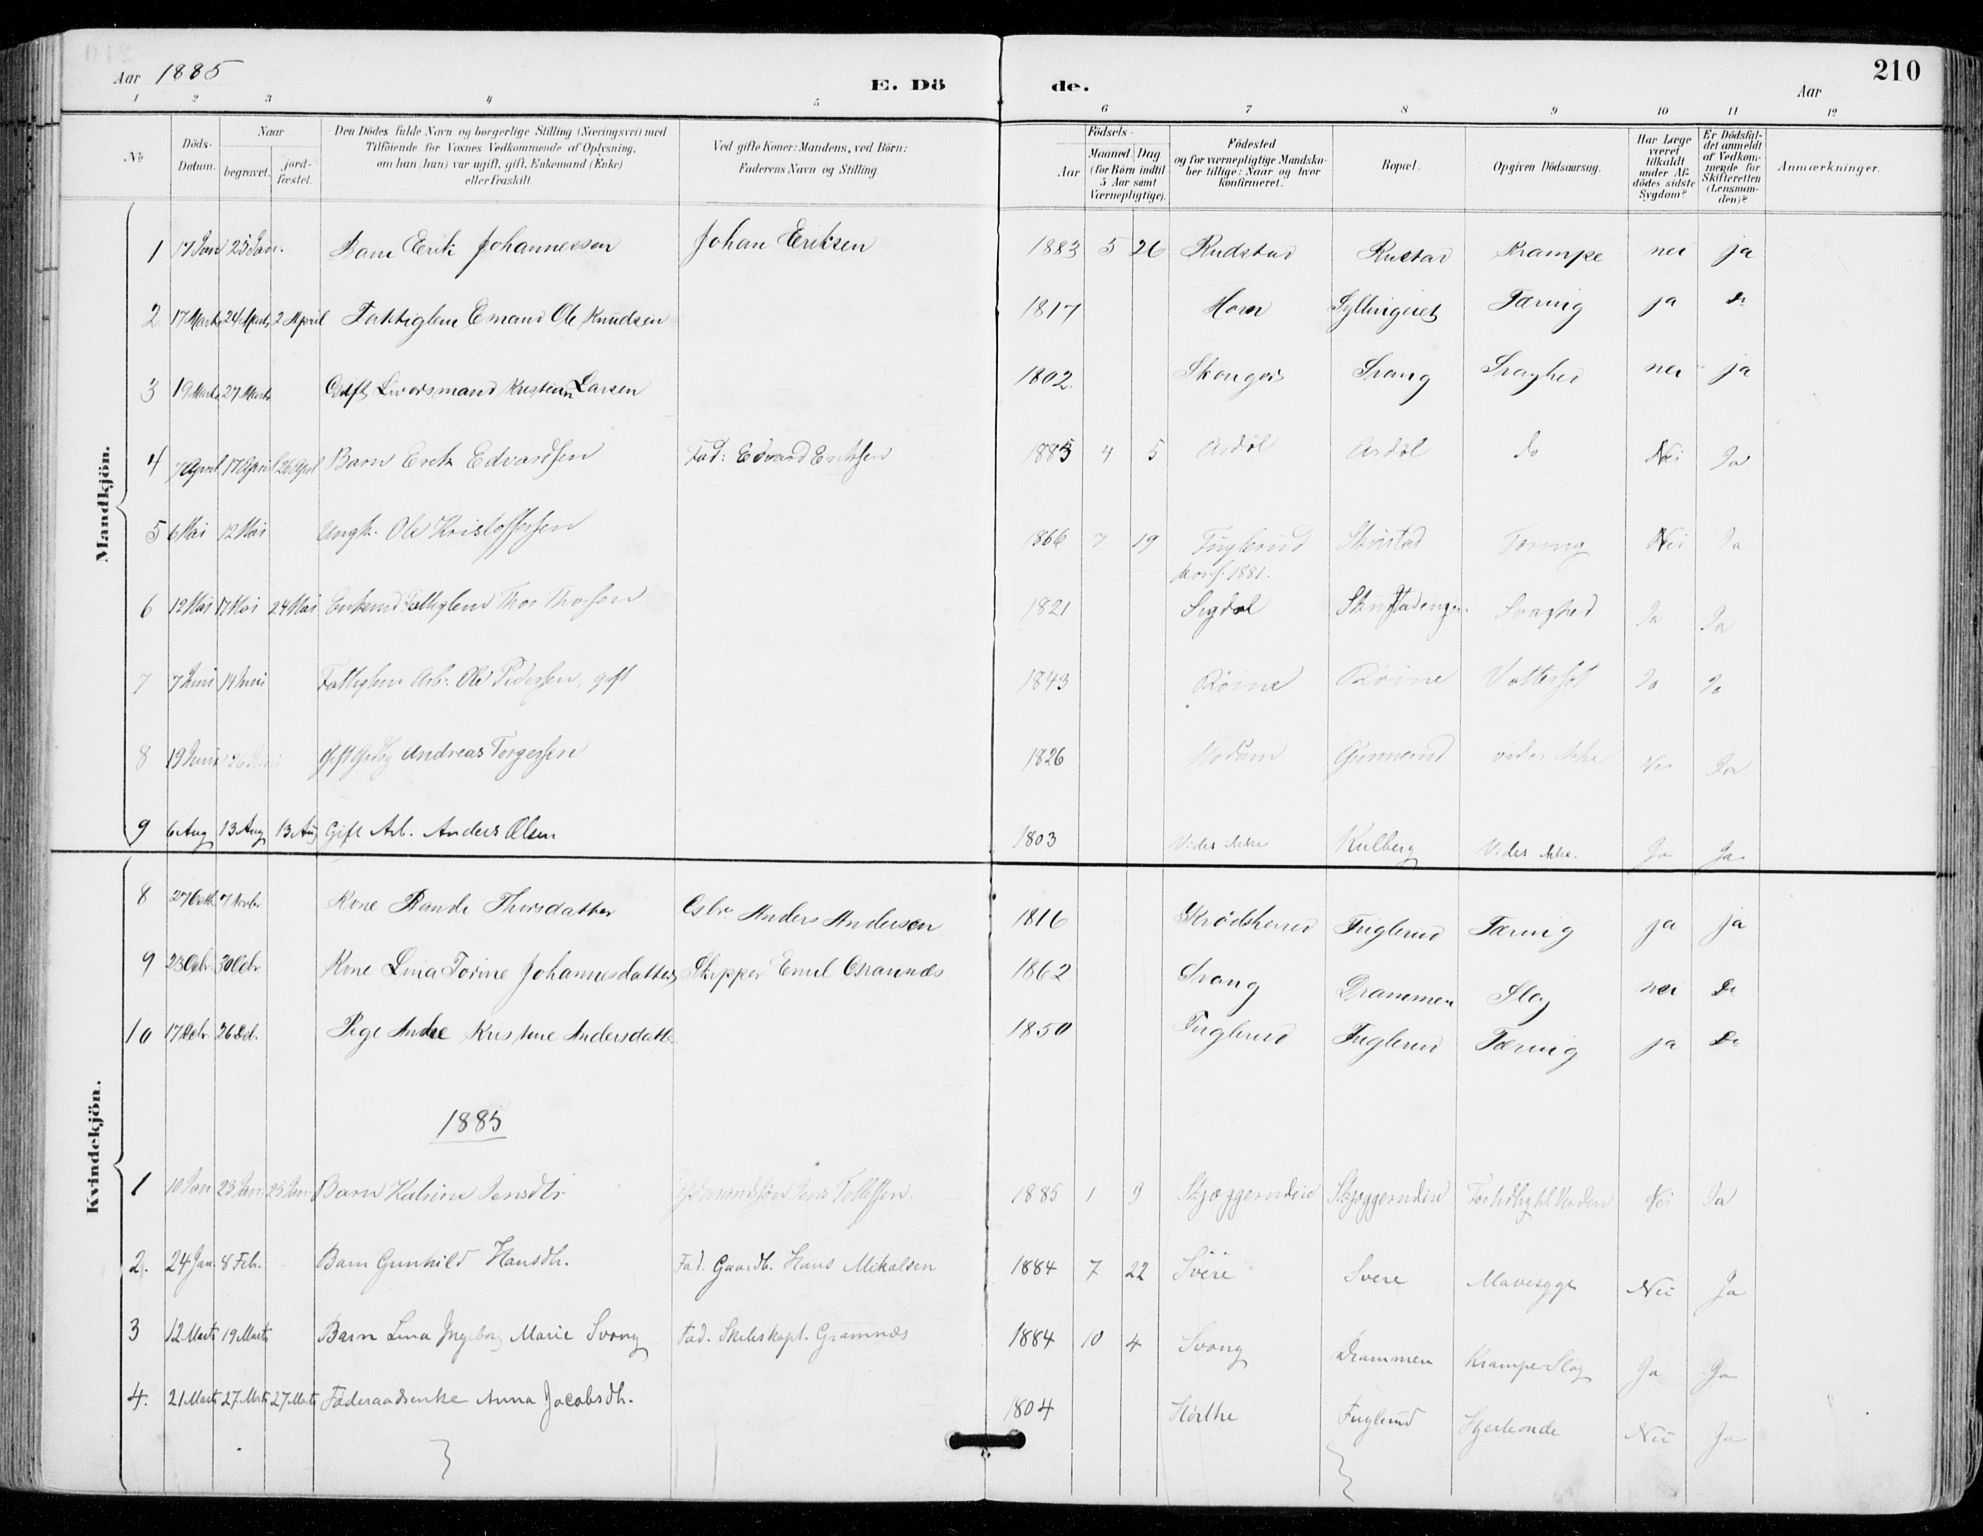 Aar 1885
E. Dö de.
Aar
210
1 2 3 4 5 6 7 8 9 10 11 12
No
Döds-Datum.
Naar
begravet.
jord-fæstet.
Den Dödes fulde Navn og borgerlige Stilling (Næringsvei) med
Tilföiende for Voxnes Vedkommende af Oplysning,
om han (hun) var ugift, gift, Enkemand (Enke)
eller fraskilt.
Ved gifte Koner: Mandens, ved Börn:
Faderens Navn og Stilling.
Födsels-
Aar
Maaned Dag
(for Börn indtil
5 Aar samt
Værnepligtige).
Födested
og for værnepligtige Mandska-
ber tillige: Naar og hvor
konfirmeret.
Bopæl.
Opgiven Dödsaarsag.
Har Læge
været
tilkaldt
under Af-
dödes sidste
Sygdom?
Er Dödsfal-
det anmeldt
af Vedkom-
mende for
Skifteretten
(Lensman-
den)?
Anmærkninger.
Mandkjön.
1 17 Jan 25 Jan. Barn Erik Johannessen Johan Eriksen 1883 5 26 Rudstad Rustad Krampe nei ja
2 17 Marts 24 Marts 2 April Fattiglem Emand Ole Knudsen 1817 Horn Tæring ja do
3 19 Marts 27 Marts Gift Kristian Larsen 1802 Svang Svaghed nei ja
4 7 April 17 April 26 April Barn Erik Edvardsen Fad: Edvard Eriksen 1885 4 5 Asdöl Asdöl do Nei Ja
5 6 Mai 12 Mai Ungk. Ole Kristoffersen 1866 7 19 Fuglerud Skinstad Tæring Nei Ja
konf. 1881.
6 12 Mai 17 Mai 24 Mai Enkemd Fattiglem Thor Thorsen 1821 Sigdal Svaghed Ja Ja
7 7 Juni 14 Juni Fattiglem Arb. Ole Pedersen, gift 1843 Röine Röine Vattersot Ja Ja
8 19 Juni 26 Juni Gift Andreas Torgersen 1826 Modum Gunnerud vides ikke Nei Ja
9 6 Aug 13 Aug 13 Aug Gift Arb. Anders Olsen 1803 Vides ikke Kulberg Vides ikke. Ja Ja
Kvindekjön.
8 27 Octb. 7 Novbr. Kone Randi Thorsdatter Anders Andersen 1816 Krödsherred Fuglerud Tæring ja ja
9 23 Octbr. 30 Octbr. Kone Lina Torine Johannesdatter Skipper Emil Gramnæs 1862 Svang Drammen Slag nei do
10 17 26 Pige Andre Kristine Andersdatter 1850 Fuglerud Fuglerud Tæring ja do
1885
1 10 Jan 23 Jan 25 Jan Barn Katrine Jensdtr Jens Tollefsen. 1885 1 9 Skjæggerudeie Skjæggerudeie Nei Ja
2. 24 Jan. 8 Febr. Barn Gunhild Hansdtr. Fad. Gaardb. Hans Mikalsen 1884 7 22 Svere Svere Mavesyge Nei Ja
3 12 Marts 19 Marts Barn Lina Ingeborg Marie Svang Fad. Skibskapt. Gramnæs 1884 10 4 Svang Drammen Krampe Slag Ja Ja
4. 21 Marts 27 Marts 27 Marts Föderaadsenke Anna Jacobsdtr. 1804 Hörthe Fuglerud Hjerteonde Nei Ja